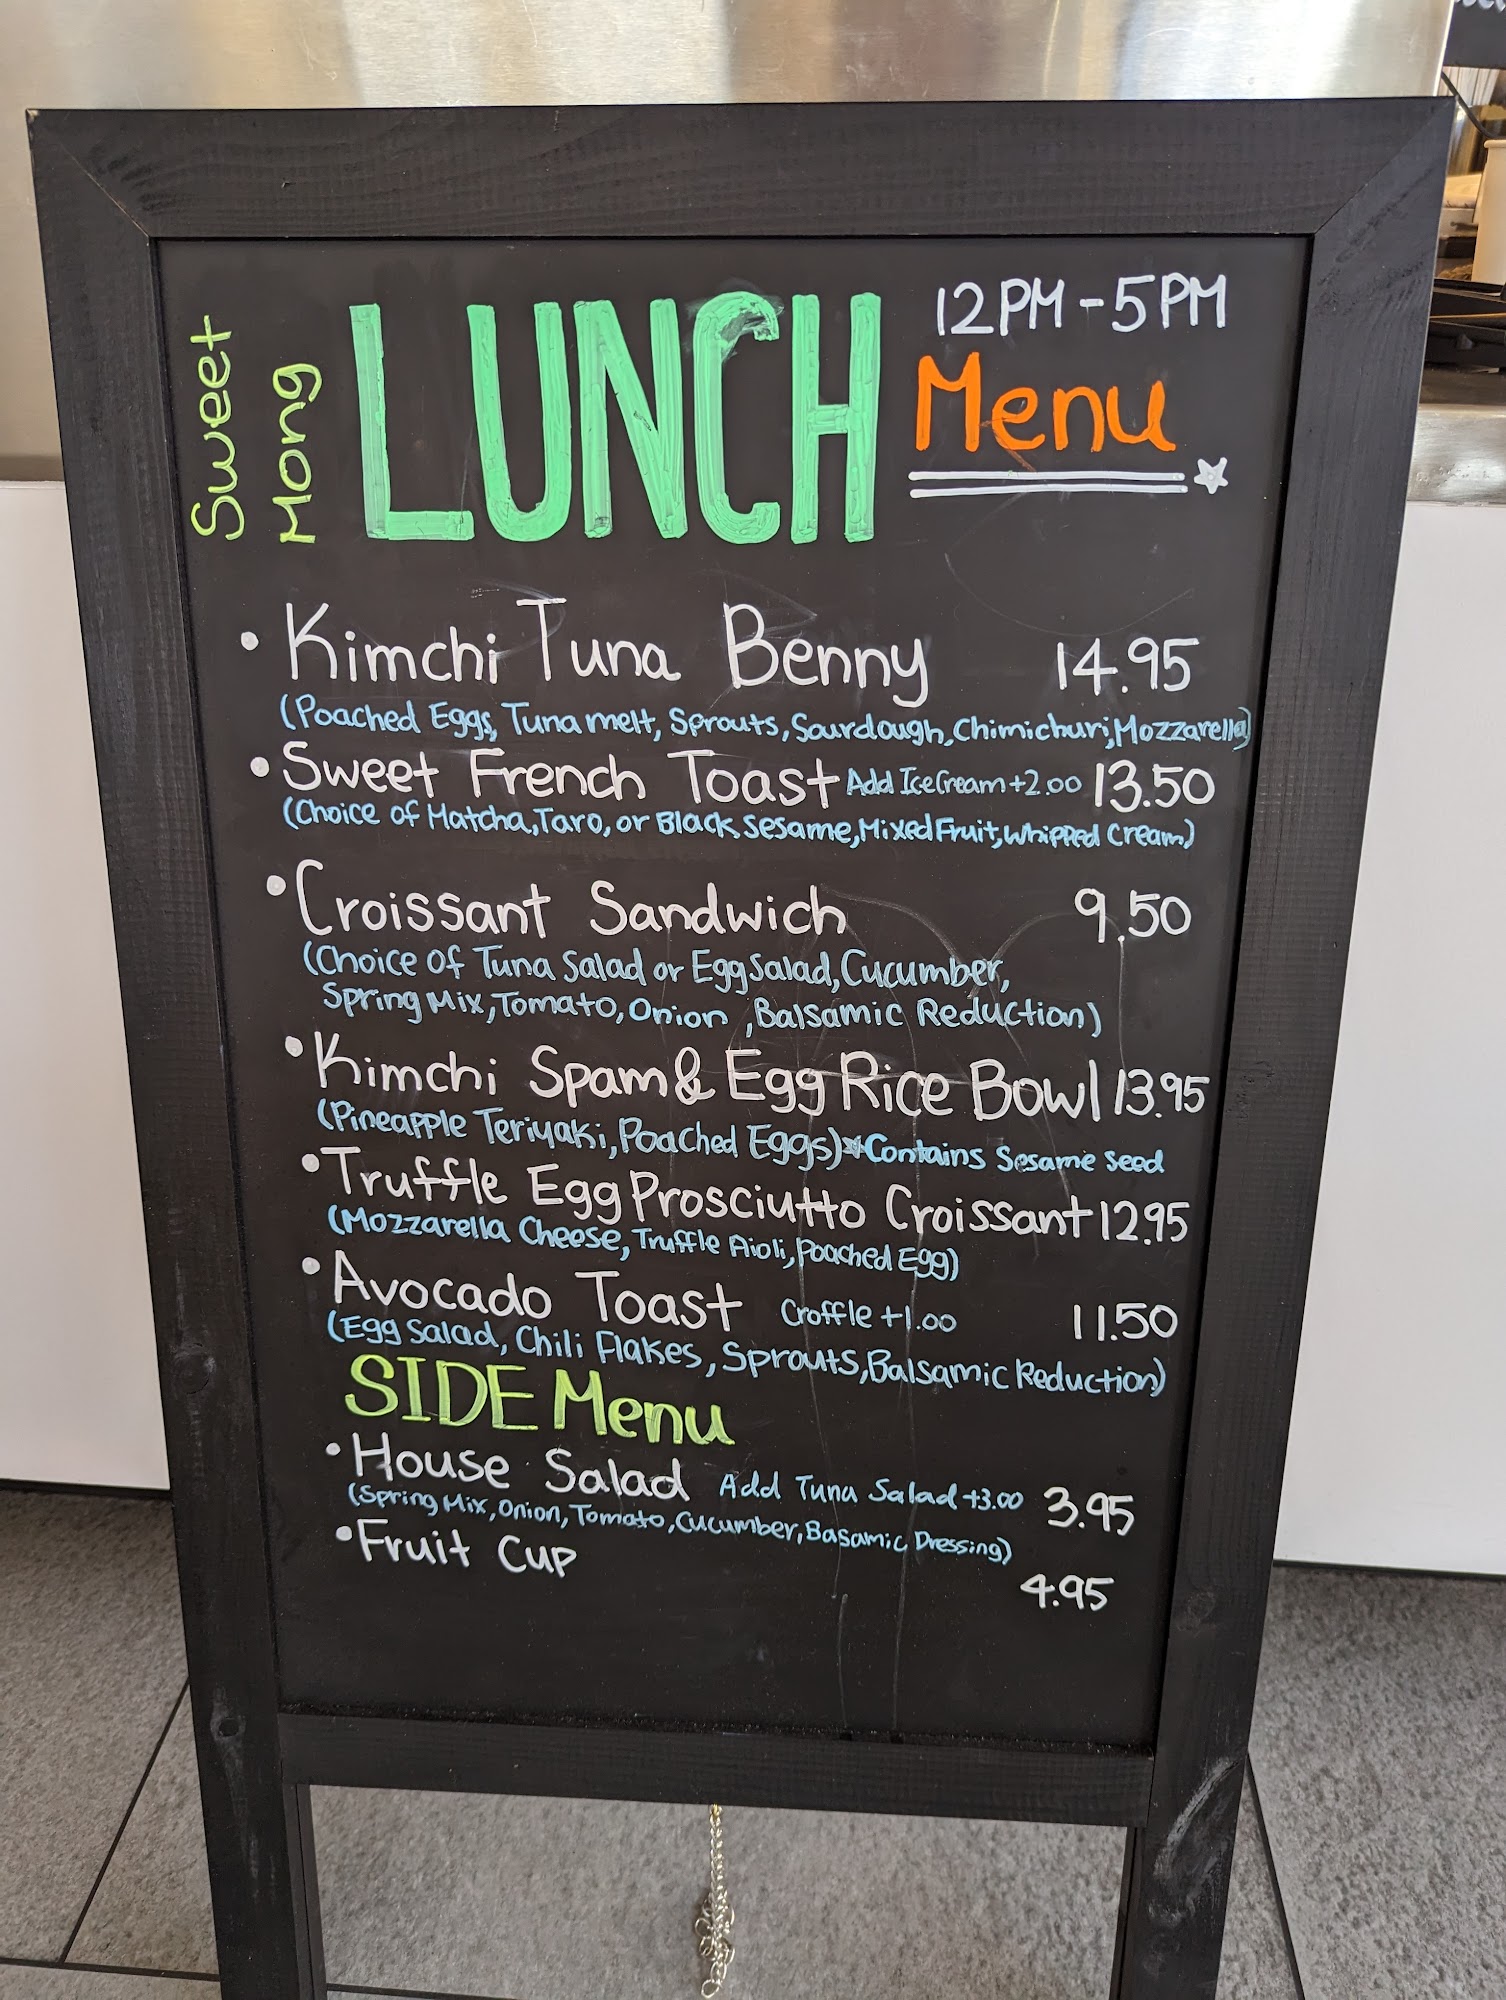 Sweet
Mong
LUNCH
12PM-5PM
Menu
• Kimchi Tuna Benny 14.95
(Poached Eggs, Tuna melt, Sprouts, Sourdough, Chimichuri, Mozzarella)
• Sweet French Toast Add Ice Cream +2.00 13.50
(Choice of Matcha, Taro, or Black Sesame, Mixed Fruit, Whipped Cream)
• Croissant Sandwich 9.50
(Choice of Tuna Salad or Egg Salad, Cucumber,
Spring Mix, Tomato, Onion, Balsamic Reduction)
• Kimchi Spam & Egg Rice Bowl 13.95
(Pineapple Teriyaki, Poached Eggs) *Contains Sesame Seed
• Truffle Egg Prosciutto Croissant 12.95
(Mozzarella Cheese, Truffle Aioli, Poached Egg)
• Avocado Toast Croffle +1.00 11.50
(Egg Salad, Chili Flakes, Sprouts, Balsamic Reduction)
SIDE Menu
• House Salad Add Tuna Salad +3.00 3.95
(Spring Mix, Onion, Tomato, Cucumber, Basamic Dressing)
• Fruit Cup 4.95